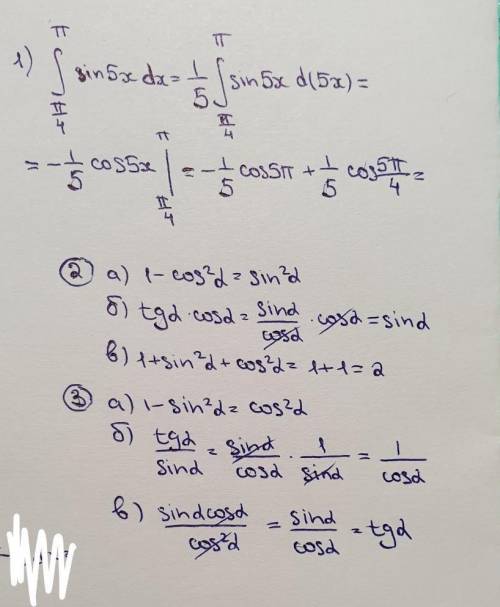 1) ∫_{π/4}^{π} sin5x dx = 1/5 ∫_{π/4}^{π} sin5x d(5x) =
= -1/5 cos5x |_{π/4}^{π} = -1/5 cos5π + 1/5 cos 5π/4 =
② а) 1 - cos²α = sin²α
б) tgα · cosα = sinα/cosα · cosα = sinα
в) 1 + sin²α + cos²α = 1 + 1 = 2
③ а) 1 - sin²α = cos²α
б) tgα/sinα = sinα/cosα · 1/sinα = 1/cosα
в) sinαcosα/cos²α = sinα/cosα = tgα